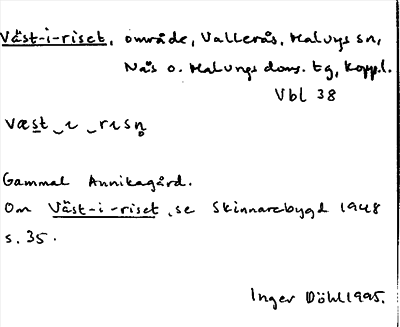 Väst-i-riset, område, Vallerås, Malungs sn,
Nås o. Malungs doms. tg, Koppl.
Vbl 38
væst ‿ı ‿rısn̥
Gammal Annikagård.
Om Väst-i-riset, se Skinnarebygd 1948
s. 35.
Inger Döhl 1995.